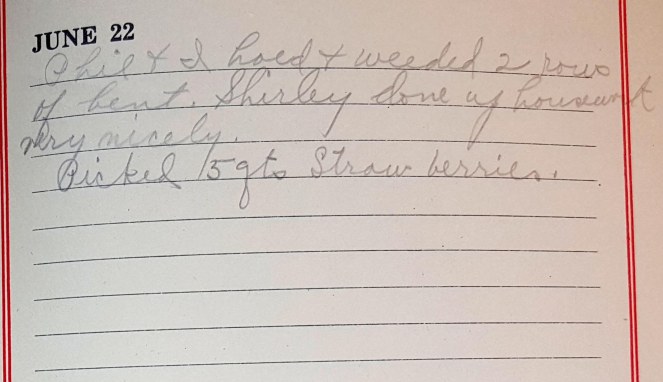 JUNE 22
Phil & I hoed & weeded 2 rows
of bent. Shirley done up housework
very nicely.
Picked 15 qts Straw berries.